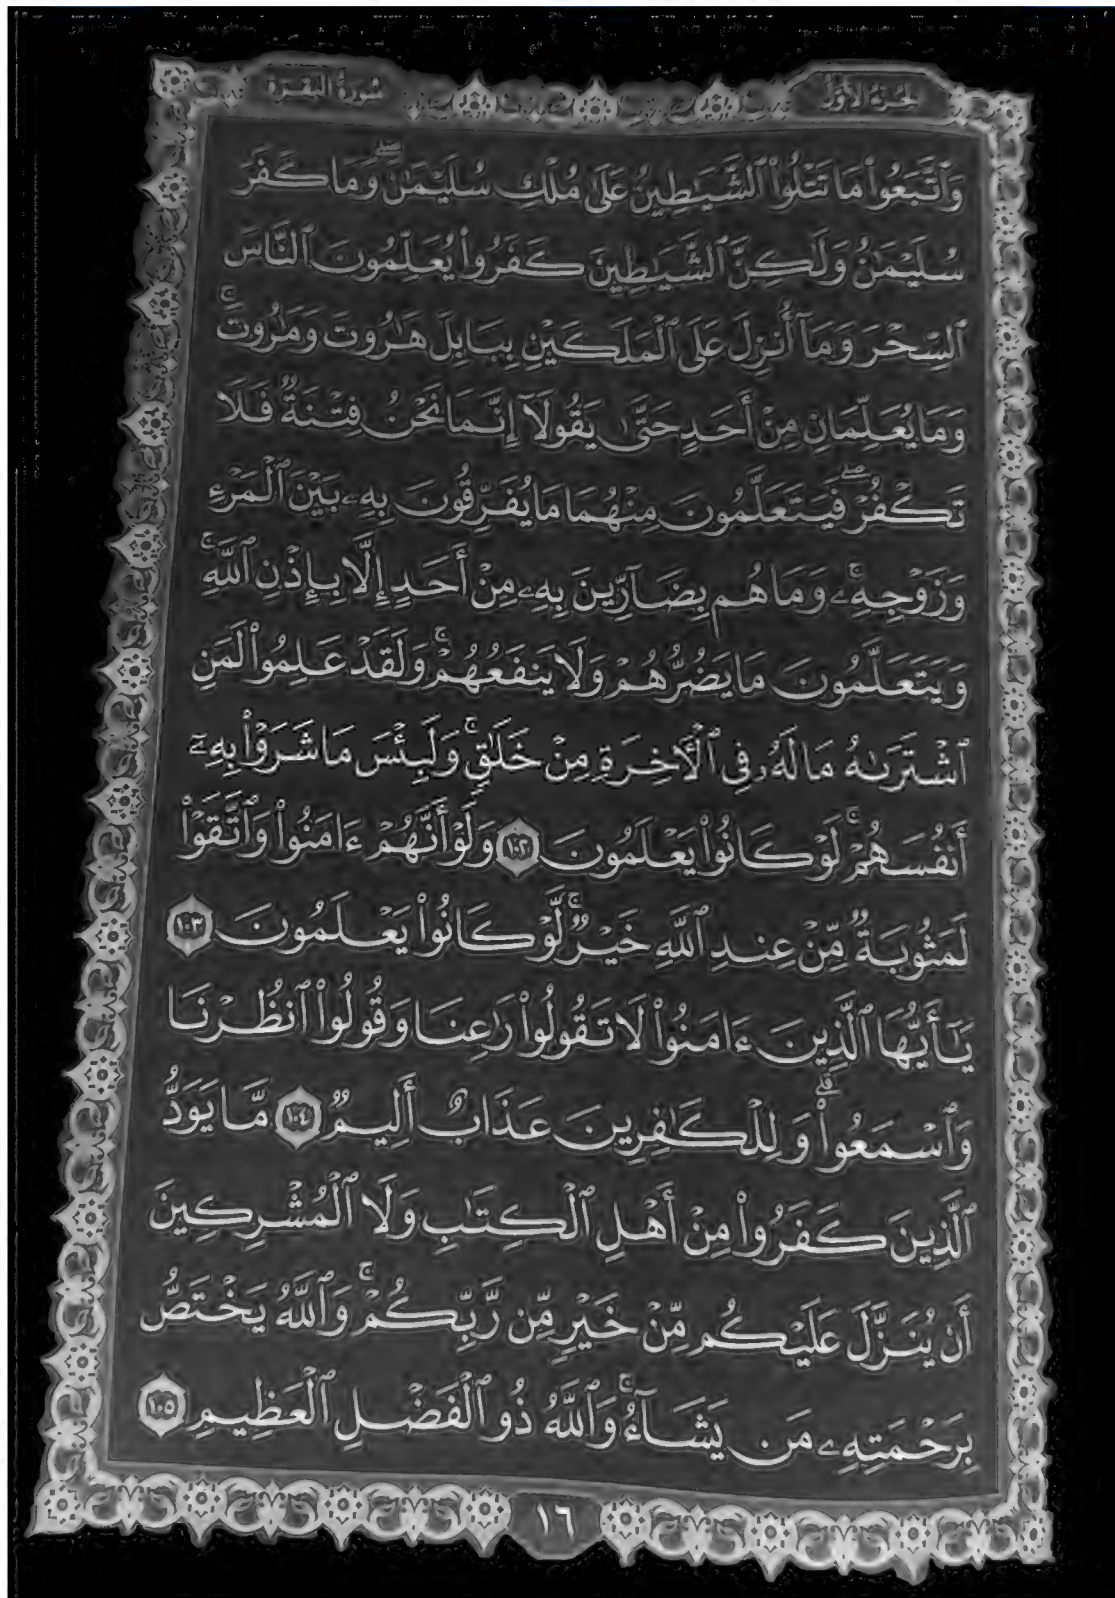 الجزء الأول
سورة البقرة
وَٱتَّبَعُوا۟ مَا تَتْلُوا۟ ٱلشَّيَٰطِينُ عَلَىٰ مُلْكِ سُلَيْمَٰنَۖ وَمَا كَفَرَ
سُلَيْمَٰنُ وَلَٰكِنَّ ٱلشَّيَٰطِينَ كَفَرُوا۟ يُعَلِّمُونَ ٱلنَّاسَ
ٱلسِّحْرَ وَمَآ أُنزِلَ عَلَى ٱلْمَلَكَيْنِ بِبَابِلَ هَٰرُوتَ وَمَٰرُوتَۚ
وَمَا يُعَلِّمَانِ مِنْ أَحَدٍ حَتَّىٰ يَقُولَآ إِنَّمَا نَحْنُ فِتْنَةٌ فَلَا
تَكْفُرْۖ فَيَتَعَلَّمُونَ مِنْهُمَا مَا يُفَرِّقُونَ بِهِۦ بَيْنَ ٱلْمَرْءِ
وَزَوْجِهِۦۚ وَمَا هُم بِضَآرِّينَ بِهِۦ مِنْ أَحَدٍ إِلَّا بِإِذْنِ ٱللَّهِۚ
وَيَتَعَلَّمُونَ مَا يَضُرُّهُمْ وَلَا يَنفَعُهُمْۚ وَلَقَدْ عَلِمُوا۟ لَمَنِ
ٱشْتَرَىٰهُ مَا لَهُۥ فِى ٱلْءَاخِرَةِ مِنْ خَلَٰقٍۚ وَلَبِئْسَ مَا شَرَوْا۟ بِهِۦٓ
أَنفُسَهُمْۚ لَوْ كَانُوا۟ يَعْلَمُونَ ١٠٢ وَلَوْ أَنَّهُمْ ءَامَنُوا۟ وَٱتَّقَوْا۟
لَمَثُوبَةٌ مِّنْ عِندِ ٱللَّهِ خَيْرٌۚ لَّوْ كَانُوا۟ يَعْلَمُونَ ١٠٣
يَٰٓأَيُّهَا ٱلَّذِينَ ءَامَنُوا۟ لَا تَقُولُوا۟ رَٰعِنَا وَقُولُوا۟ ٱنظُرْنَا
وَٱسْمَعُوا۟ۗ وَلِلْكَٰفِرِينَ عَذَابٌ أَلِيمٌ ١٠٤ مَّا يَوَدُّ
ٱلَّذِينَ كَفَرُوا۟ مِنْ أَهْلِ ٱلْكِتَٰبِ وَلَا ٱلْمُشْرِكِينَ
أَن يُنَزَّلَ عَلَيْكُم مِّنْ خَيْرٍ مِّن رَّبِّكُمْۚ وَٱللَّهُ يَخْتَصُّ
بِرَحْمَتِهِۦ مَن يَشَآءُۚ وَٱللَّهُ ذُو ٱلْفَضْلِ ٱلْعَظِيمِ ١٠٥
١٦